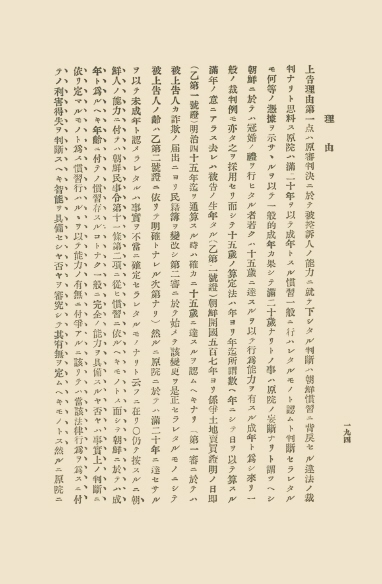 一九四
理由
上告理由第一点ハ原審判決ニ於テ被控訴人ノ能力ニ就テ下シタル判断ハ朝鮮慣習ニ背戻セル違法ノ裁
判ナリト思料ス原院ハ満二十年ヲ以テ成年トスル慣習一般ニ行ハレタルモノト認ムト判断セラレタル
モ何等ノ憑拠ヲ示サヽルヲ以テ一般的成年カ果シテ満二十歳ナリトノ事ハ原院ノ妄断ナリト謂ツヘシ
朝鮮ニ於テハ冠婚ノ礼ヲ行ヒタル者若クハ十五歳ニ達スルヲ以テ行為能力ヲ有スル成年ト為シ来リ一
般ノ裁判例モ亦之ヲ採用セリ而シテ十五歳ノ算定法ハ年ヨリ年迄所謂数ヘ年ニシテ日ヲ以テ算スル
満年ノ意ニアラス去レハ被告ノ生年タル(乙第一號證)朝鮮開國五百七年ヨリ係争土地賣買證明ノ日即
(乙第一號證)明治四十五年迄ヲ通算スル時ハ確カニ十五歳ニ達スルヲ認ムヘキナリ「第一審ニ於テハ
被上告人カ詐欺ノ届出ニヨリ民籍簿ヲ變改シ第二審ニ於テ始メテ該變更ヲ是正セラレタルモノニシテ
被上告人ノ齢ハ乙第二號證ニ依リテ明確トナレル次第ナリ)然ルニ原院ニ於テハ満二十年ニ達セサル
ヲ以テ未成年ト認メラレタルハ事實ヲ不當ニ確定セラレタルモノナリト云フニ在リ〇仍テ按スルニ朝
鮮人ノ能力ニ付テハ朝鮮民事令第十一條第二項ニ從ヒ慣習ニ依ルヘキモノトス而シテ朝鮮ニ於テハ成
年ト為ルヘキ年齢ニ付テノ慣習存スルコトナク一般ニ完全ノ能力ヲ具備スルヤ否ヤハ事實上ノ判断ニ
依リ定マルモノトス為ス慣習行ハルヽヲ以テ能力ノ有無ニ付争アルニ該リテハ當該法律行為ヲ為スニ付
テノ利害得失ヲ判断スヘキ智能ヲ具備セシヤ否ヤヲ審究シテ其有無ヲ定ムヘキモノトス然ルニ原院ニ